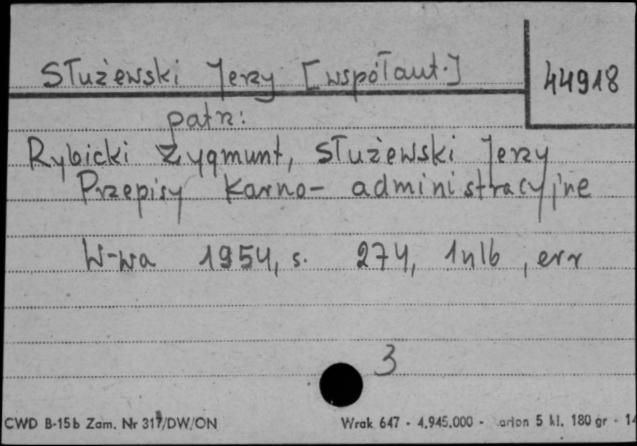 Służewski Jerzy [współaut.]
44918
patrz:
Rybicki Zygmunt, Służewski Jerzy
Przepisy karno-administracyjne
W-wa 1954, s. 274, 1nlb, err
3
CWD B-15b Zam. Nr 317/DW/ON
Wrak 647 - 4.945.000 - arton 5 kl. 180 gr - 1